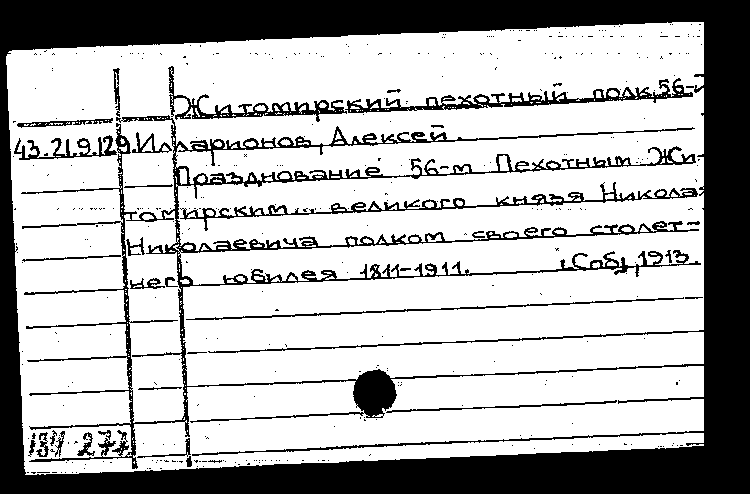 Житомирский пехотный полк, 56-й
43.21.9.129. Илларионов, Алексей.
Празднование 56-м Пехотным Жи-
томирским... великого князя Никола
Николаевича полком своего столет-
него юбилея 1811-1911. [Спб], 1913.
134 277